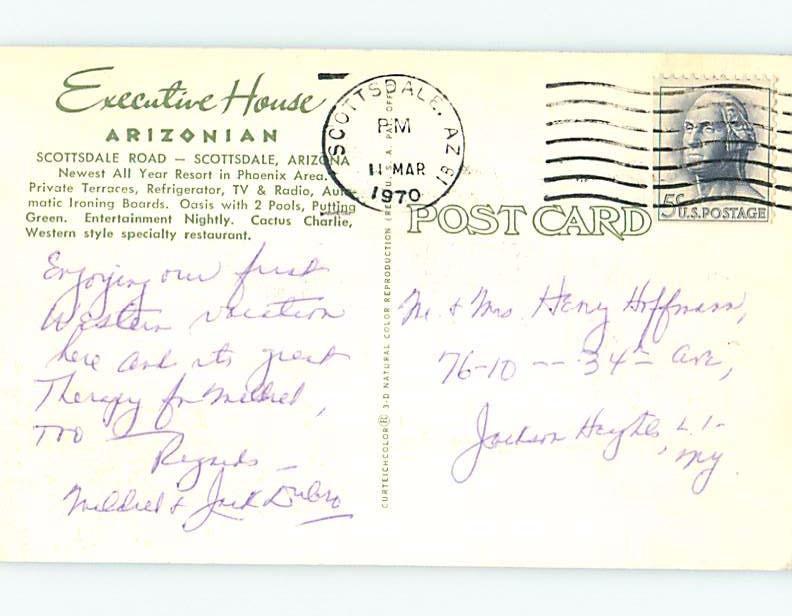 Executive House
ARIZONIAN
SCOTTSDALE ROAD — SCOTTSDALE, ARIZONA
Newest All Year Resort in Phoenix Area.
Private Terraces, Refrigerator, TV & Radio, Auto-
matic Ironing Boards. Oasis with 2 Pools, Putting
Green. Entertainment Nightly. Cactus Charlie,
Western style specialty restaurant.
Enjoying our first
Western vacation
here and its great
Therapy for Mildred,
too —
Regards —
Mildred & Jack
CURTEICHCOLOR® 3-D NATURAL COLOR REPRODUCTION (REG. U.S.A. PAT. OFF.)
SCOTTSDALE, AZ
PM
11 MAR
1970
5¢ U.S. POSTAGE
POST CARD
Mr. & Mrs. Henry Hoffmann,
76-10 -- 34 - Ave,
Jackson Heights, L.I.
NY.